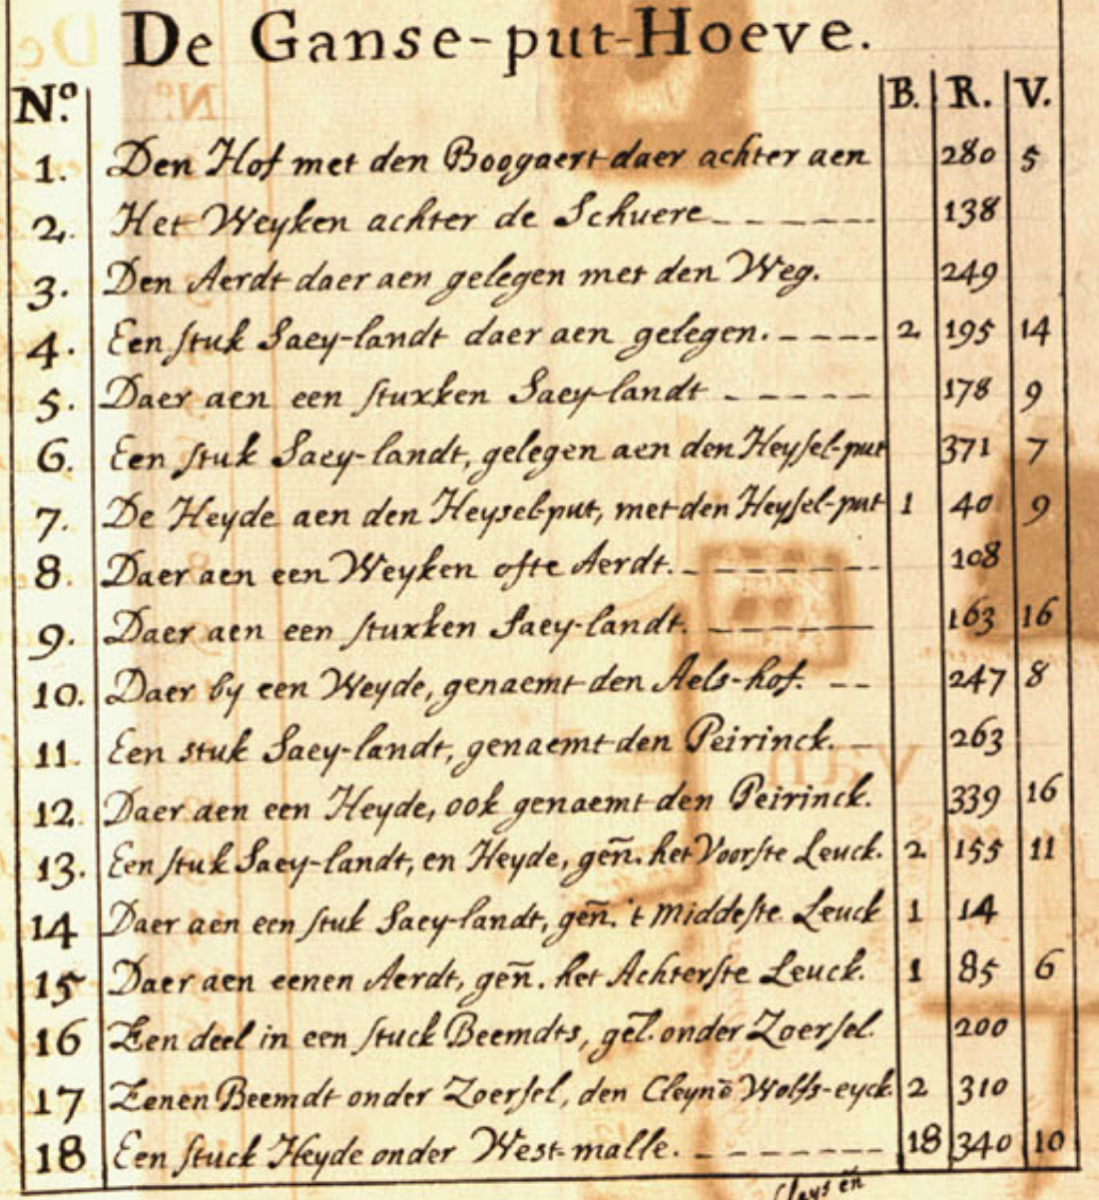 De Ganse-put-Hoeve.
N.o B. R. V.
1. Den Hof met den Boogaert daer achter aen 280 5
2. Het Weyken achter de Schuere 138
3. Den Aerdt daer aen gelegen met den Weg. 249
4. Een stuk Saey-landt daer aen gelegen. 2 195 14
5. Daer aen een stuxken Saey-landt 178 9
6. Een stuk Saey-landt, gelegen aen den Heysel-put 371 7
7. De Heyde aen den Heysel-put, met den Heysel-put 1 40 9
8. Daer aen een Weyken ofte Aerdt. 108
9. Daer aen een stuxken Saey-landt. 163 16
10. Daer by een Weyde, genaemt den Aels-hof. 247 8
11. Een stuk Saey-landt, genaemt den Peirinck. 263
12. Daer aen een Heyde, ook genaemt den Peirinck. 339 16
13. Een stuk Saey-landt, en Heyde, geñ. het Voorste Leuck. 2 155 11
14 Daer aen een stuk Saey-landt, geñ. 't Middeste Leuck 1 14
15 Daer aen eenen Aerdt, geñ. het Achterste Leuck. 1 85 6
16 Een deel in een stuck Beemdts, gel̃. onder Zoersel. 200
17 Eenen Beemdt onder Zoersel, den Cleynē Wolfs-eyck. 2 310
18 Een stuck Heyde onder West-malle. 18 340 10
Cleys eñ